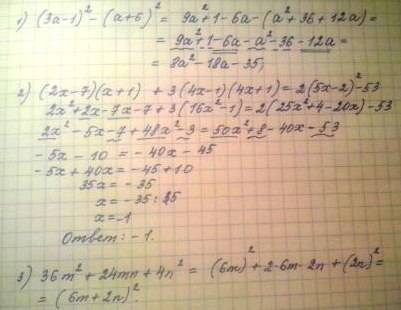 1) (3a-1)² - (a+6)² = 9a²+1-6a-(a²+36+12a)=
= 9a²+1-6a-a²-36-12a=
= 8a²-18a-35;
2) (2x-7)(x+1) + 3(4x-1)(4x+1)=2(5x-2)²-53
2x²+2x-7x-7+3(16x²-1)=2(25x²+4-20x)-53
2x²-5x-7+48x²-3=50x²+8-40x-53
-5x-10 = -40x-45
-5x+40x=-45+10
35x=-35
x=-35:35
x=-1
Ответ: -1.
3) 36m²+24mn+4n² = (6m)²+2·6m·2n+(2n)²=
= (6m+2n)².